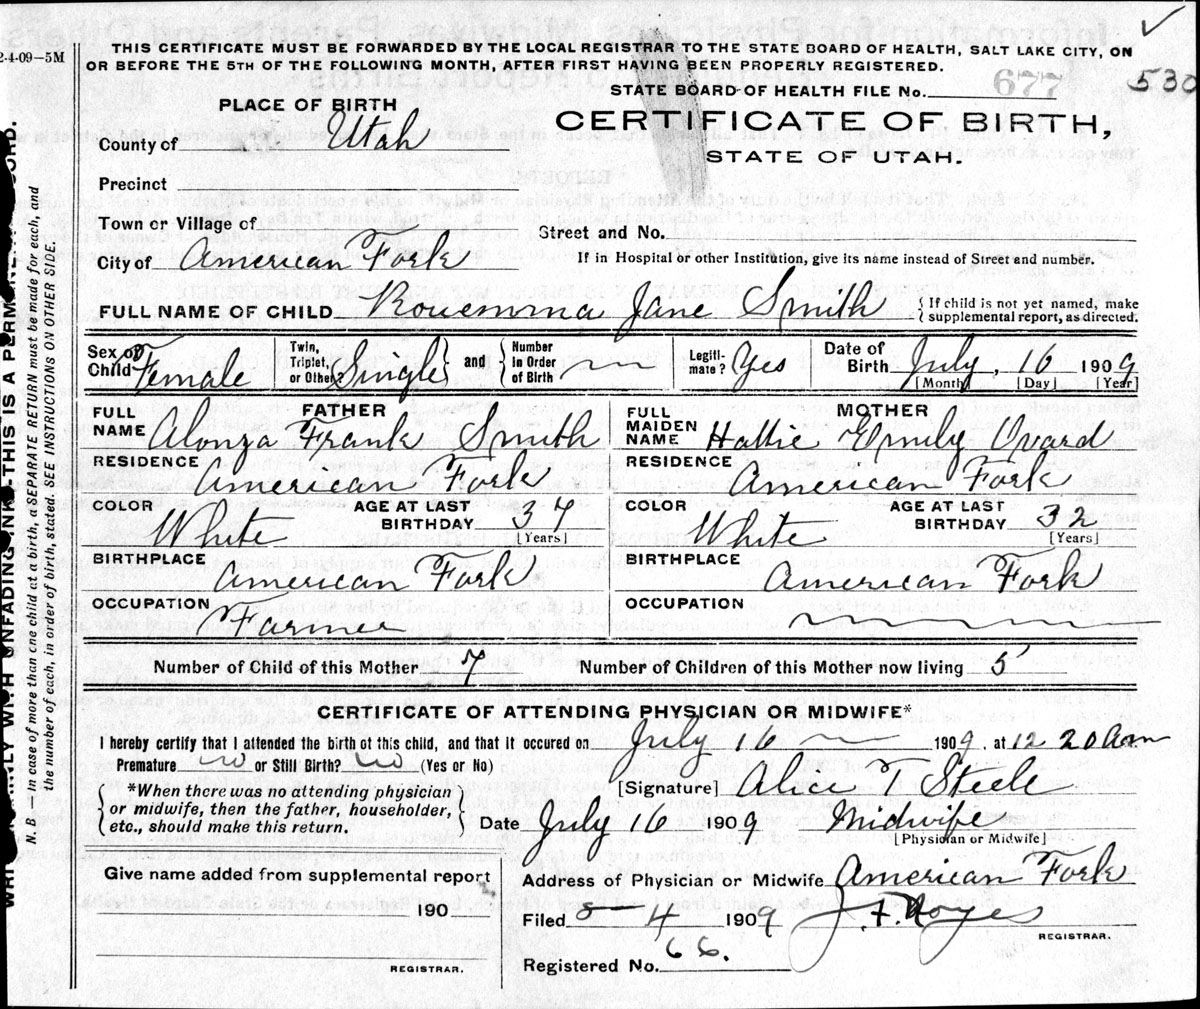 THIS CERTIFICATE MUST BE FORWARDED BY THE LOCAL REGISTRAR TO THE STATE BOARD OF HEALTH, SALT LAKE CITY, ON
OR BEFORE THE 5TH OF THE FOLLOWING MONTH, AFTER FIRST HAVING BEEN PROPERLY REGISTERED.
2-4-09—5M
STATE BOARD OF HEALTH FILE No. 677 530
PLACE OF BIRTH
CERTIFICATE OF BIRTH,
STATE OF UTAH.
County of Utah
Precinct
Town or Village of
Street and No.
City of American Fork
If in Hospital or other Institution, give its name instead of Street and number.
FULL NAME OF CHILD Rouemma Jane Smith { If child is not yet named, make supplemental report, as directed.
Sex of Child Female Twin, Triplet, or Other? Single } and { Number in Order of Birth Legiti-mate? Yes Date of Birth July, 16 1909
[Month] [Day] [Year]
FATHER MOTHER
FULL NAME Alonza Frank Smith FULL MAIDEN NAME Hattie Emily Ovard
RESIDENCE American Fork RESIDENCE American Fork
COLOR White AGE AT LAST BIRTHDAY 37 [Years] COLOR White AGE AT LAST BIRTHDAY 32 [Years]
BIRTHPLACE American Fork BIRTHPLACE American Fork
OCCUPATION Farmer OCCUPATION
Number of Child of this Mother 7 Number of Children of this Mother now living 5
CERTIFICATE OF ATTENDING PHYSICIAN OR MIDWIFE*
I hereby certify that I attended the birth of this child, and that it occured on July 16 1909. at 12 20 am
Premature no or Still Birth? no (Yes or No)
[Signature] Alice T Steele
{ *When there was no attending physician
or midwife, then the father, householder,
etc., should make this return. }
Date July 16 1909 Midwife
[Physician or Midwife]
Give name added from supplemental report
190
REGISTRAR.
Address of Physician or Midwife American Fork
Filed 8-4 1909 J. F. Noyes
REGISTRAR.
Registered No. 66.
N. B.—In case of more than one child at a birth, a SEPARATE RETURN must be made for each, and
the number of each, in order of birth, stated. SEE INSTRUCTIONS ON OTHER SIDE.
WITH UNFADING INK—THIS IS A